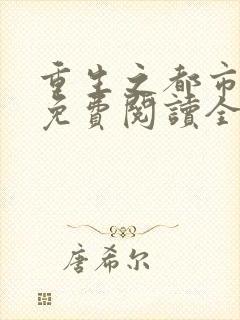 重生之都市
免費閱讀全
唐希尔